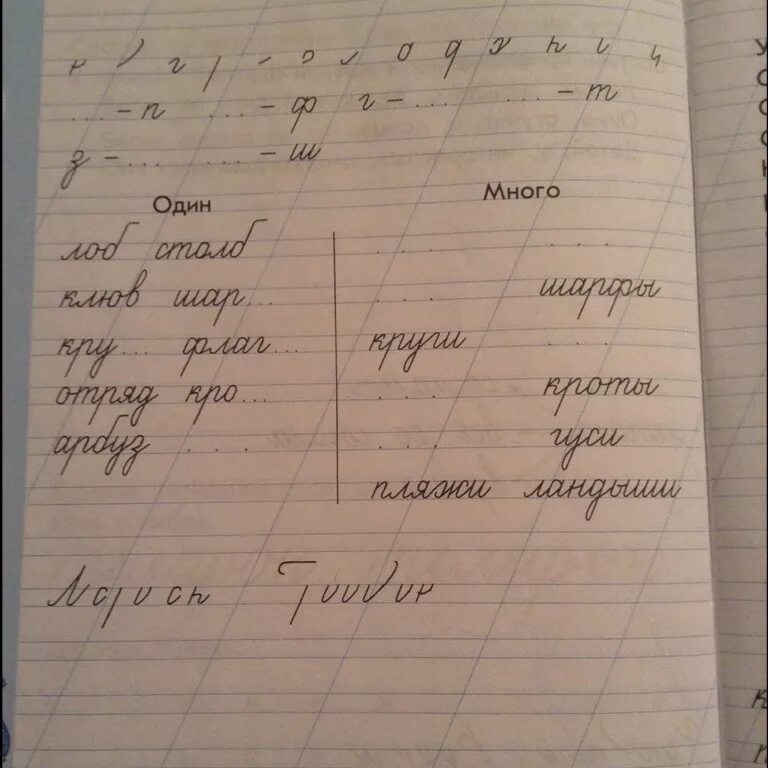 ...-п ...-ф г-... ...-т
з-... ...-ш
Один Много
лоб столб ... ...
клюв шар... ... шарфы
кру... флаг... круги ...
отряд кро... ... кроты
арбуз ... ... гуси
пляжи ландыши